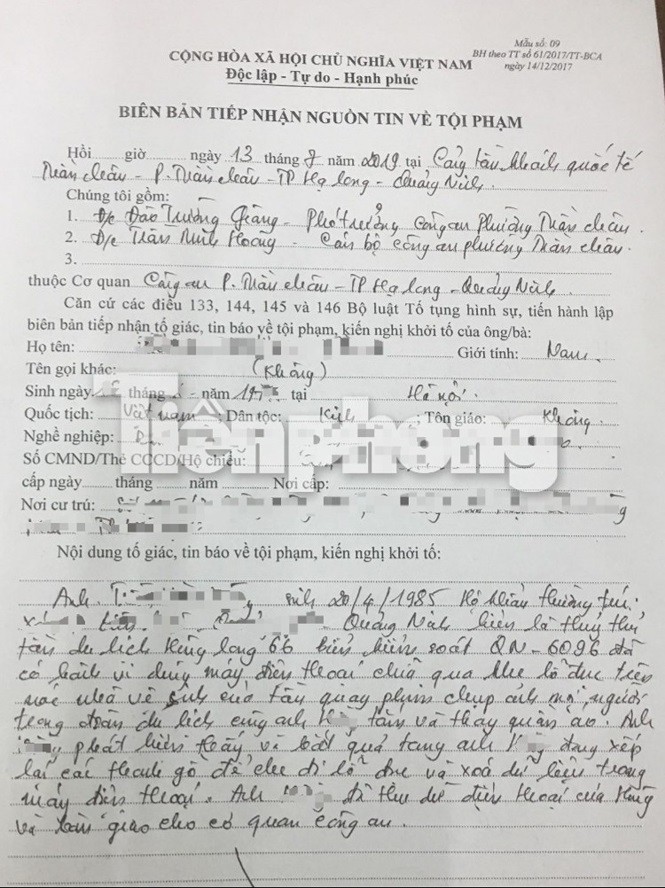 Mẫu số: 09
BH theo TT số 61/2017/TT-BCA
ngày 14/12/2017
CỘNG HÒA XÃ HỘI CHỦ NGHĨA VIỆT NAM
Độc lập - Tự do - Hạnh phúc
BIÊN BẢN TIẾP NHẬN NGUỒN TIN VỀ TỘI PHẠM
Hồi giờ ngày 13 tháng 7 năm 2019 tại Cảng tàu khách quốc tế
Tuần Châu - P. Tuần Châu - TP Hạ Long - Quảng Ninh.
Chúng tôi gồm:
1. Đ/c Đào Trường Giang - Phó trưởng công an phường Tuần Châu.
2. Đ/c Trần Minh Hoàng - Cán bộ công an phường Tuần Châu.
3.
thuộc Cơ quan Công an P. Tuần Châu - TP Hạ Long - Quảng Ninh.
Căn cứ các điều 133, 144, 145 và 146 Bộ luật Tố tụng hình sự, tiến hành lập
biên bản tiếp nhận tố giác, tin báo về tội phạm, kiến nghị khởi tố của ông/bà:
Họ tên: Giới tính: Nam.
Tên gọi khác: (Không)
Sinh ngày tháng năm tại Hà Nội.
Quốc tịch: Việt Nam; Dân tộc: Kinh; Tôn giáo: Không
Nghề nghiệp:
Tiền phong
Số CMND/Thẻ CCCD/Hộ chiếu:
cấp ngày tháng năm Nơi cấp:
Nơi cư trú:
Nội dung tố giác, tin báo về tội phạm, kiến nghị khởi tố:
Anh sinh 20/4/1985 Hộ khẩu thường trú:
Quảng Ninh hiện là thủy thủ
tàu du lịch Hùng Long 66 biển kiểm soát QN-6096 đã
có hành vi dùng máy điện thoại chĩa qua khe lỗ đục trên
nóc nhà vệ sinh của tàu quay phim chụp ảnh mọi người
trong đoàn du lịch cùng anh tắm và thay quần áo. Anh
phát hiện thấy và bắt quả tang anh đang xếp
lại các thanh gỗ để che đi lỗ đục và xoá dữ liệu trong
máy điện thoại. Anh đã thu giữ điện thoại của Hùng
và bàn giao cho cơ quan công an.